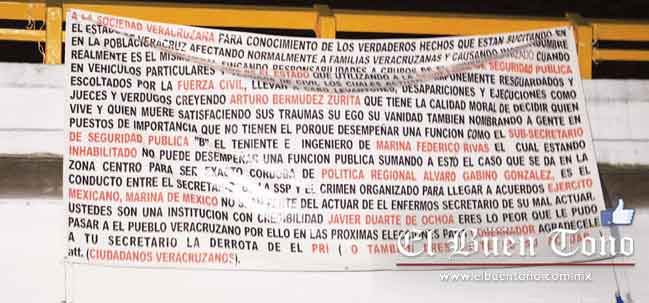 A LA SOCIEDAD VERACRUZANA PARA CONOCIMIENTO DE LOS VERDADEROS HECHOS QUE ESTAN SUCITANDO EN
EL ESTADO DE VERACRUZ AFECTANDO NORMALMENTE A FAMILIAS VERACRUZANAS Y CAUSANDO
EN LA POBLACI REALMENTE ES EL MISMO RESPONSABILIDADES A GRUPOS SEGURIDAD PUBLICA CUANDO
EN VEHICULOS PARTICULARES Y EL ESTADO QUE UTILIZANDO A LA
ESCOLTADOS POR LA FUERZA CIVIL, LLEVAN DESAPARICIONES Y EJECUCIONES COMO RESGUARDADOS Y
JUECES Y VERDUGOS CREYENDO ARTURO BERMUDEZ ZURITA QUE TIENE LA CALIDAD MORAL DE DECIDIR QUIEN
VIVE Y QUIEN MUERE SATISFACIENDO SUS TRAUMAS SU EGO SU VANIDAD TAMBIEN NOMBRANDO A GENTE EN
PUESTOS DE IMPORTANCIA QUE NO TIENEN EL PORQUE DESEMPEÑAR UNA FUNCION COMO EL SUB-SECRETARIO
DE SEGURIDAD PUBLICA "B" EL TENIENTE E INGENIERO DE MARINA FEDERICO RIVAS EL CUAL ESTANDO
INHABILITADO NO PUEDE DESEMPEÑAR UNA FUNCION PUBLICA SUMANDO A ESTO EL CASO QUE SE DA EN LA
ZONA CENTRO PARA SER EXACTO CORDOBA DE POLITICA REGIONAL ALVARO GABINO GONZALEZ, ES EL
CONDUCTO ENTRE EL SECRETARIO LA SSP Y EL CRIMEN ORGANIZADO PARA LLEGAR A ACUERDOS EJERCITO
MEXICANO, MARINA DE MEXICO NO PARTE DEL ACTUAR DE EL ENFERMOS SECRETARIO DE SU MAL ACTUAR.
USTEDES SON UNA INSTITUCION CON CREDIBILIDAD JAVIER DUARTE DE OCHOA ERES LO PEOR QUE LE PUDO
PASAR AL PUEBLO VERACRUZANO POR ELLO EN LAS PROXIMAS ELECCIONES PARA GOBERNADOR AGRADECELE
A TU SECRETARIO LA DERROTA DE EL PRI O TAMBIEN ERES
att. (CIUDADANOS VERACRUZANOS).
El Buen Tono
www.elbuentono.com.mx